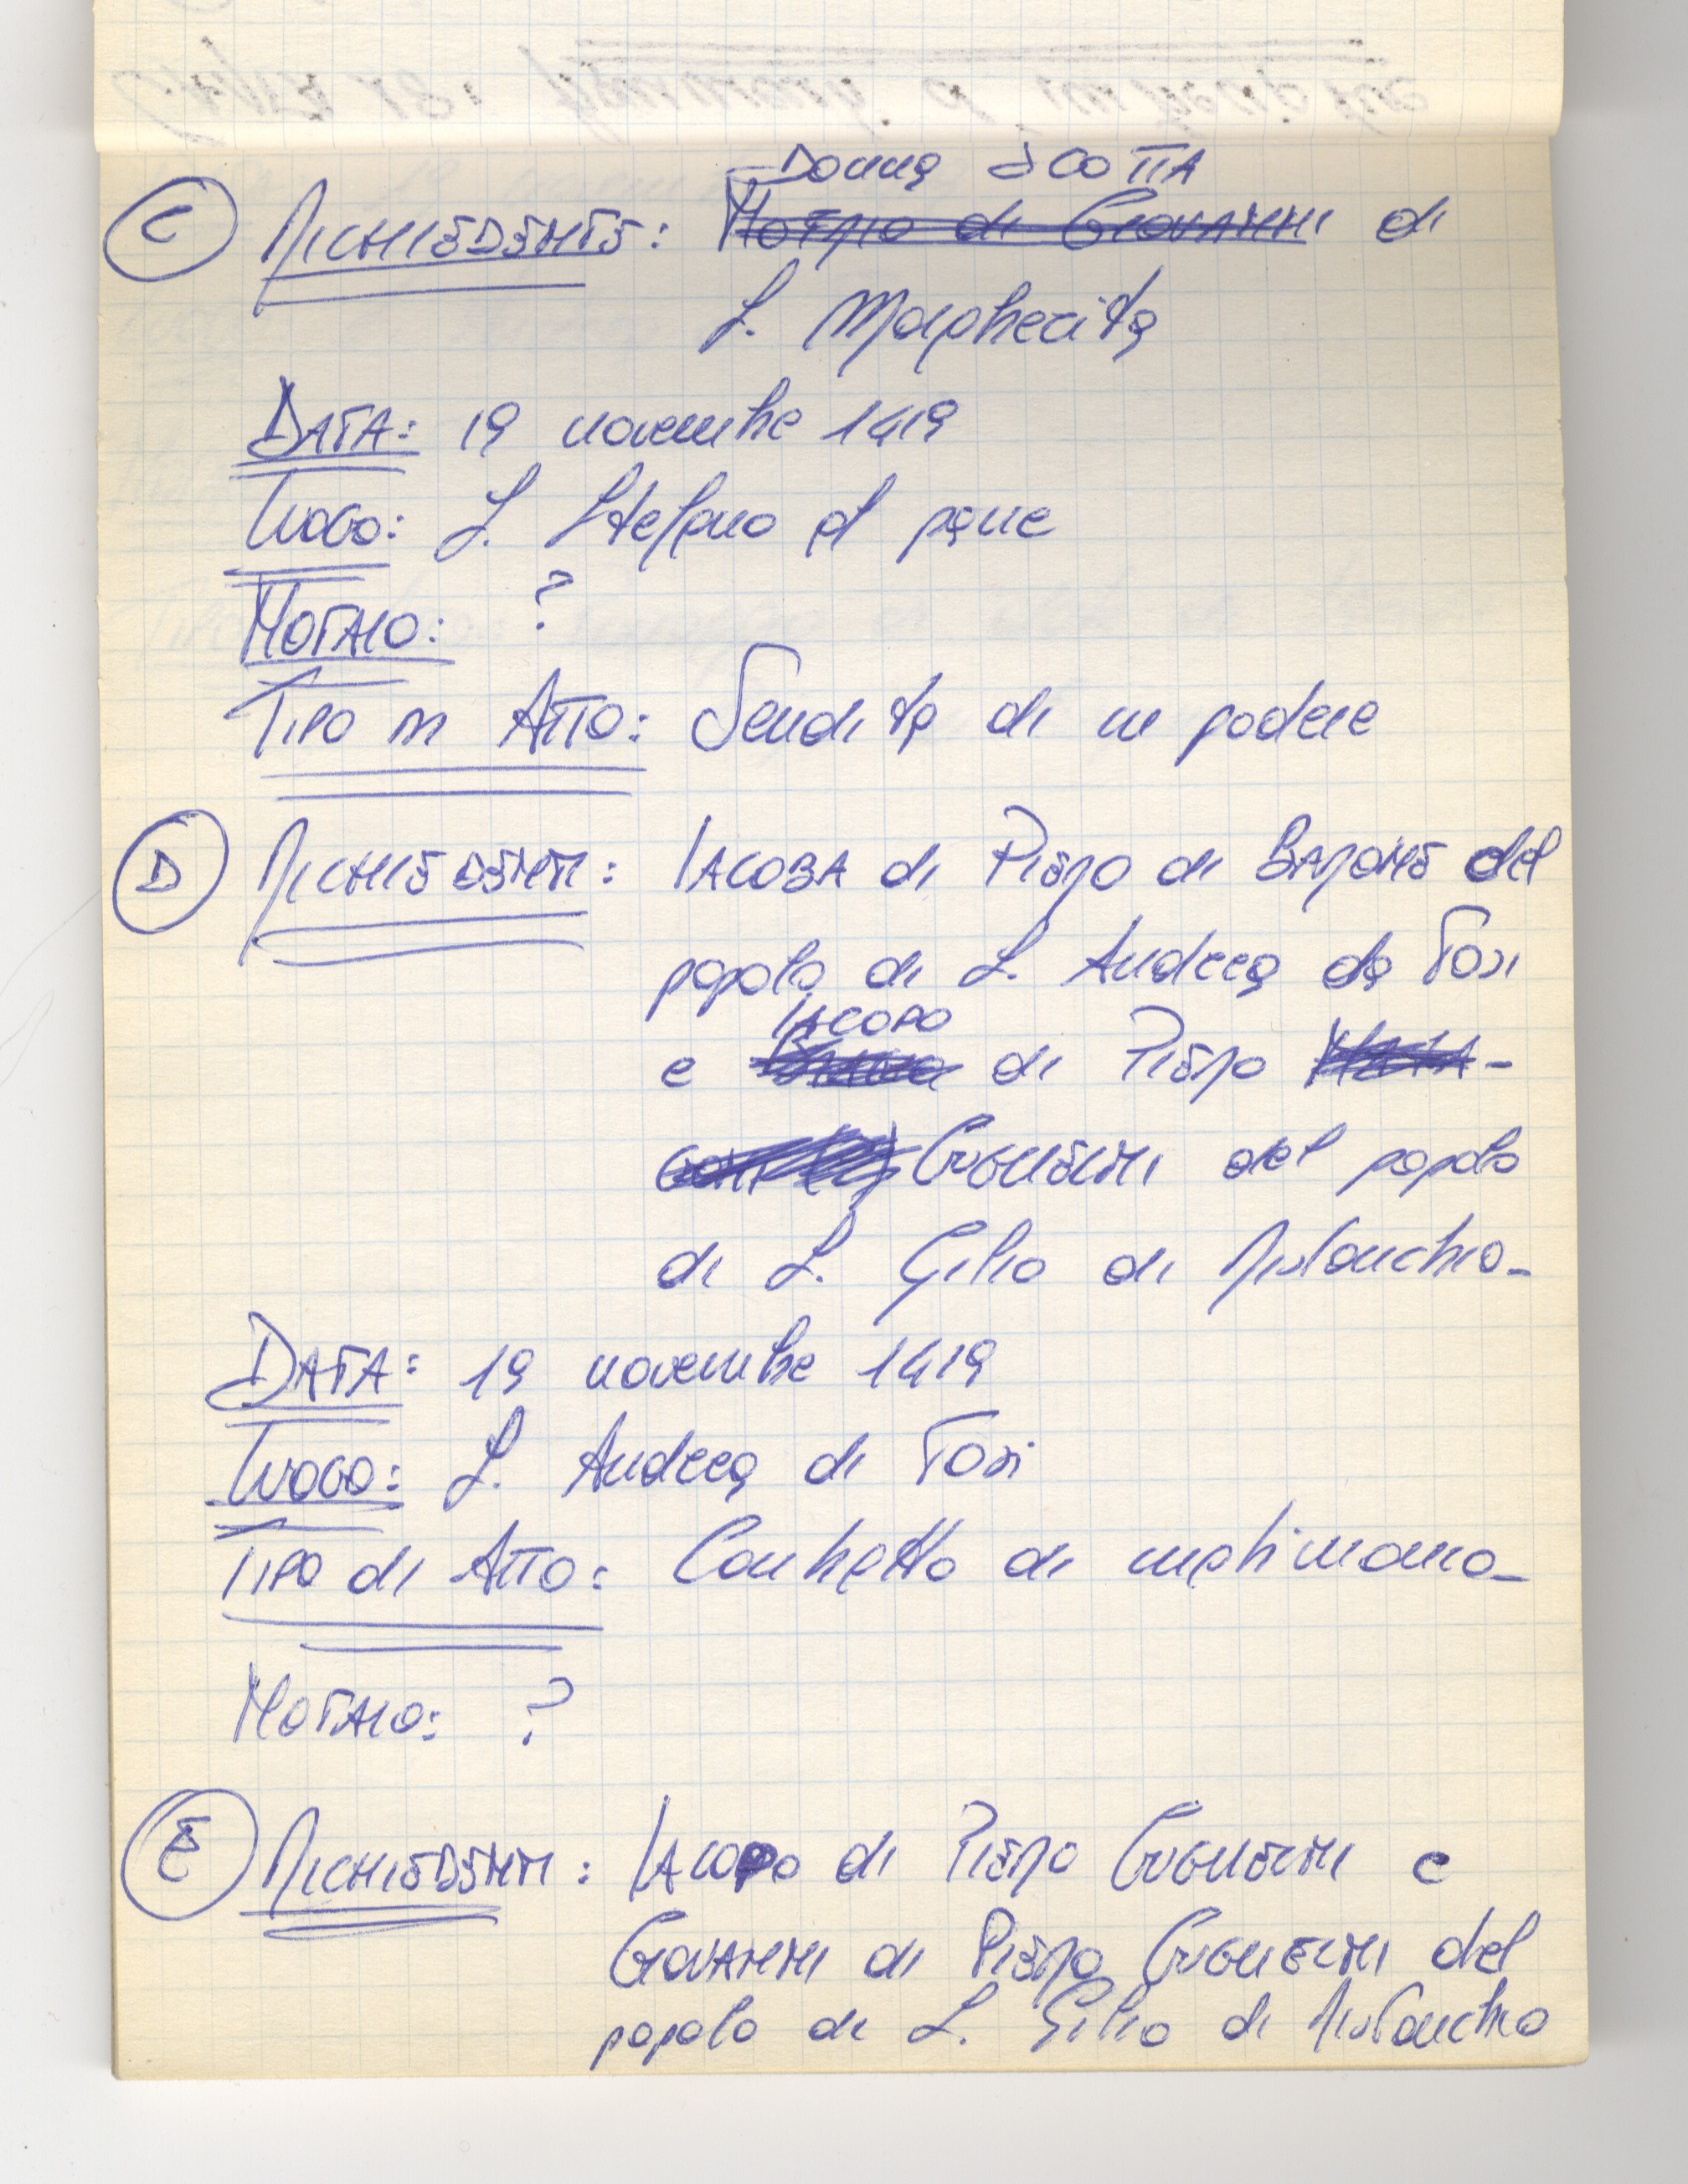 Donna SCOTTA
Ⓒ RICHIEDENTE: NOTAIO di GIOVANNI di
S. Margherita
DATA: 19 novembre 1419
LUOGO: S. Stefano al pane
NOTAIO: ?
TIPO DI ATTO: Vendita di un podere
Ⓓ RICHIEDENTI: IACOBA di PIERO di BARONE del
popolo di S. Andrea da Tosi
IACOPO
e di PIERO
GUGLIELMI del popolo
di S. Gilio di Risconchio
DATA: 19 novembre 1419
LUOGO: S. Andrea di Tosi
TIPO di ATTO: Contratto di matrimonio
NOTAIO: ?
Ⓔ RICHIEDENTI: IACOPO di PIERO GUGLIELMI e
GIOVANNI di PIERO GUGLIELMI del
popolo di S. Gilio di Risconchio